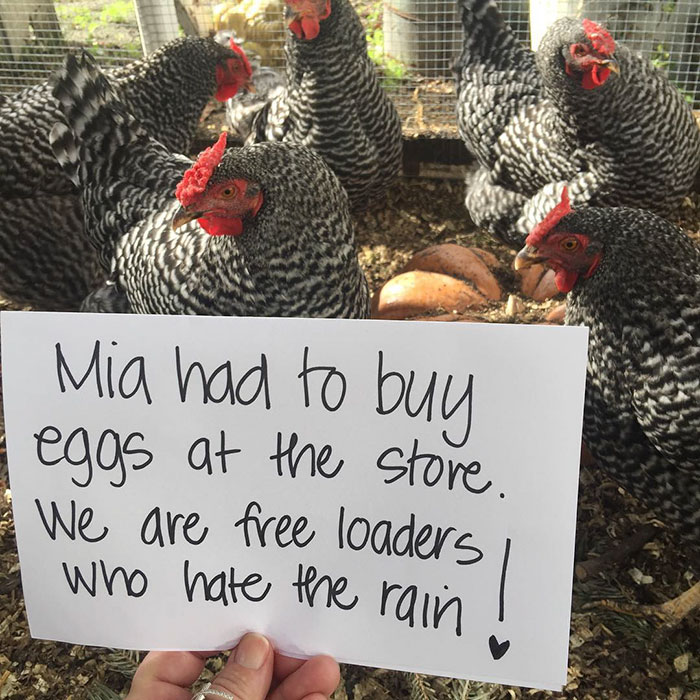 Mia had to buy
eggs at the store.
We are free loaders
who hate the rain! ♥